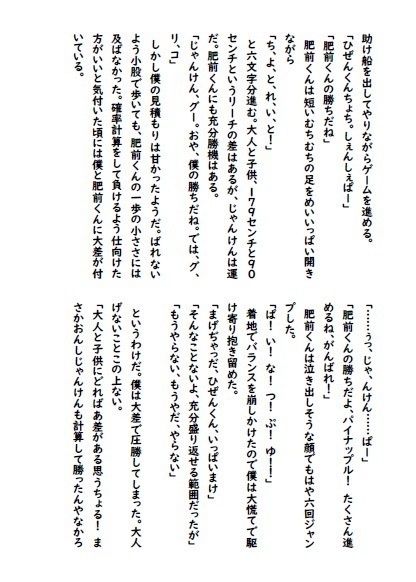 助け船を出してやりながらゲームを進める。
「ひぜんくんちょち。しぇんしぇぱー」
「肥前くんの勝ちだね」
　肥前くんは短いむちむちの足をめいいっぱい開き
ながら
「ち、よ、と、れ、い、と！」
　と六文字分進む。大人と子供、179センチと90
センチというリーチの差はあるが、じゃんけんは運
だ。肥前くんにも充分勝機はある。
「じゃんけん、グー。おや、僕の勝ちだね。では、グ、
リ、コ」
　しかし僕の見積もりは甘かったようだ。ばれない
よう小股で歩いても、肥前くんの一歩の小ささには
及ばなかった。確率計算をして負けるよう仕向けた
方がいいと気付いた頃には僕と肥前くんに大差が付
いている。
「……うっ、じゃ、んけん……ぱー」
「肥前くんの勝ちだよ、パイナップル！　たくさん進
めるね、がんばれ！」
　肥前くんは泣き出しそうな顔でもはや六回ジャン
プした。
「ぱ！　い！　な！　つ！　ぷ！　ゆ！！」
　着地でバランスを崩しかけたので僕は大慌てで駆
け寄り抱き留めた。
「まげぢゃっだ、ひぜんくん、いっぱいまけ」
「そんなことないよ、充分盛り返せる範囲だったが」
「もうやらない、もうやだ、やらない」
　というわけだ。僕は大差で圧勝してしまった。大人
げないことこの上ない。
「大人と子供にどればあ差がある思うちょる！　ま
さかおんしじゃんけんも計算して勝ったんやなかろ